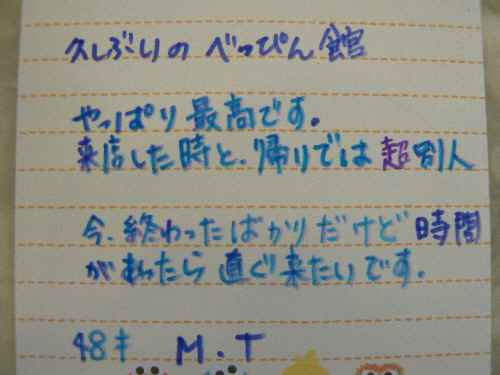 久しぶりの べっぴん館
やっぱり最高です。
来店した時と、帰りでは超別人
今、終わったばかりだけど時間
があったら直ぐ来たいです。
48才 M.T